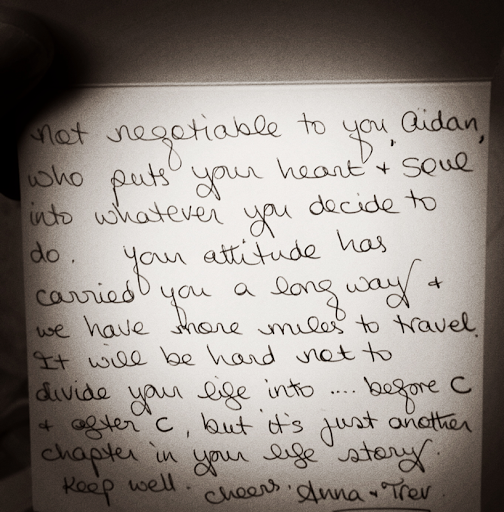 not negotiable to you Aidan,
who puts your heart + soul
into whatever you decide to
do. your attitude has
carried you a long way +
we have more miles to travel.
It will be hard not to
divide your life into .... before C
+ after C, but it's just another
chapter in your life story.
Keep well. cheers. Anna + Trev